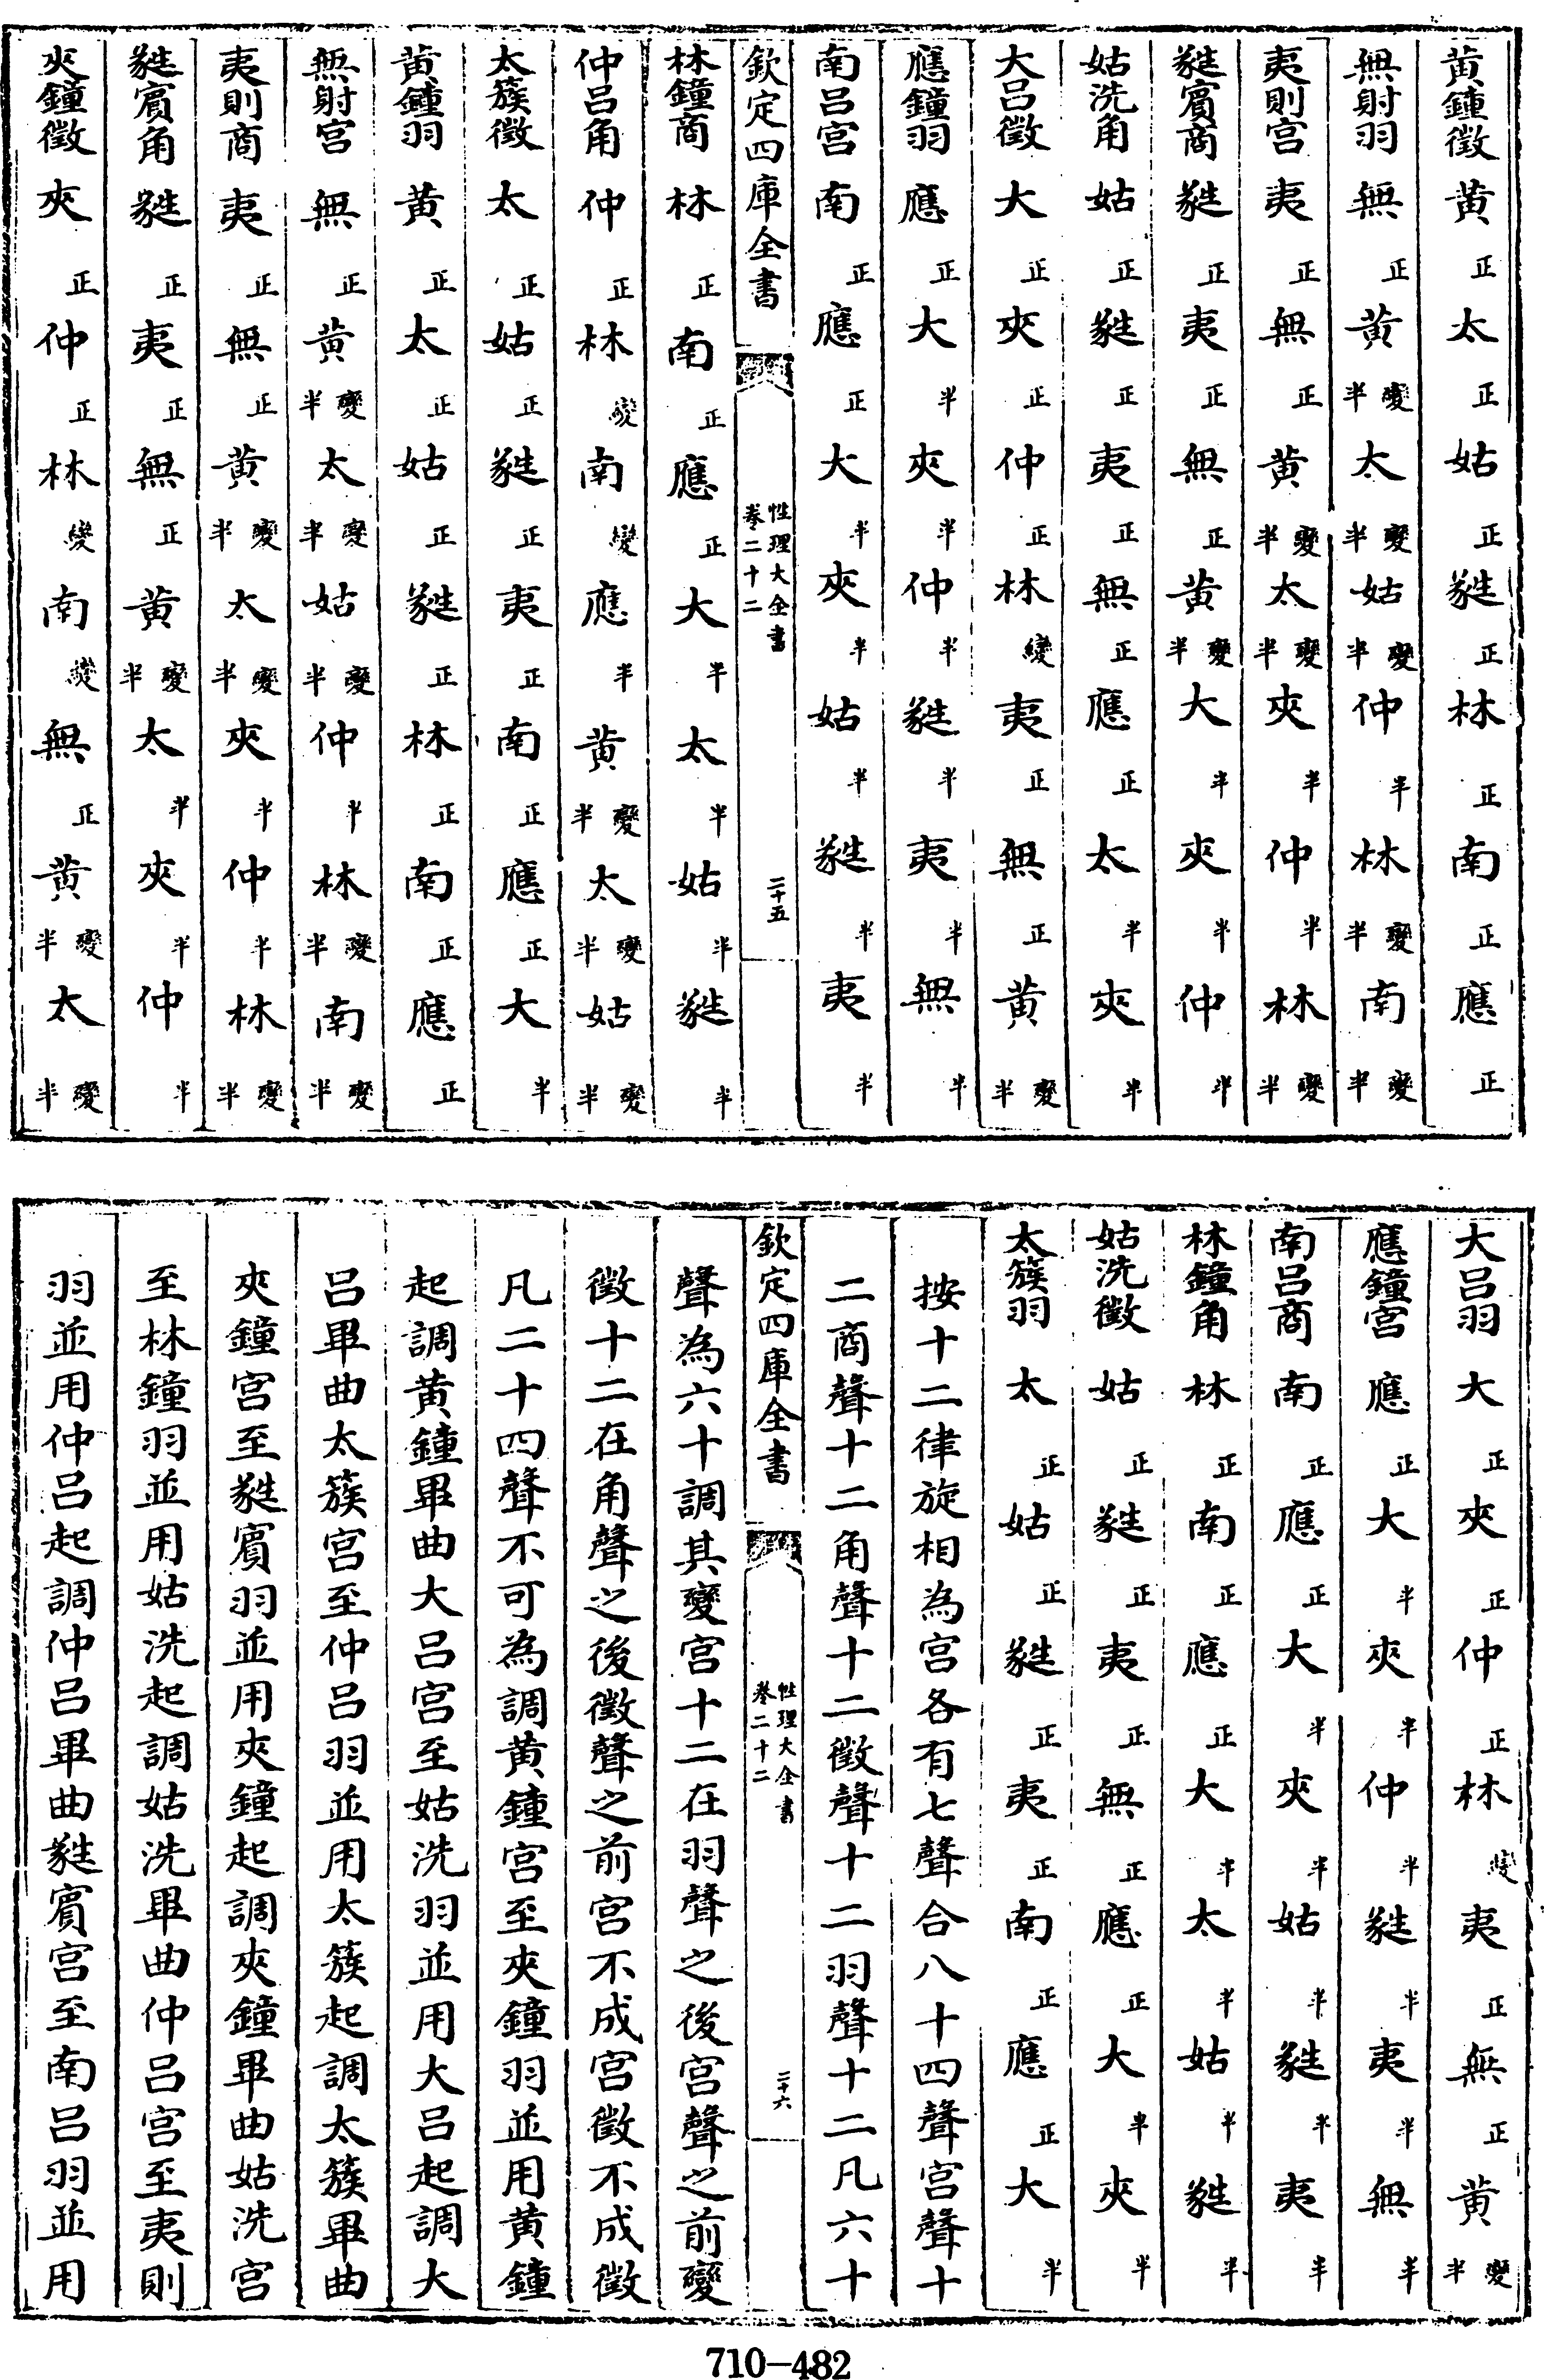 黃鍾徵 黃正 太正 姑正 蕤正 林正 南正 應正
無射羽 無正 黃變半 太變半 姑變半 仲半 林變半 南變半
夷則宮 夷正 無正 黃變半 太變半 夾半 仲半 林變半
蕤賓商 蕤正 夷正 無正 黃變半 大半 夾半 仲半
姑洗角 姑正 蕤正 夷正 無正 應正 太半 夾半
大呂徵 大正 夾正 仲正 林變 夷正 無正 黃變半
應鐘羽 應正 大半 夾半 仲半 蕤半 夷半 無半
南呂宮 南正 應正 大半 夾半 姑半 蕤半 夷半
欽定四庫全書 性理大全書 卷二十二 二十五
林鐘商 林正 南正 應正 大半 太半 姑半 蕤半
仲呂角 仲正 林變 南變 應半 黃變半 太變半 姑變半
太簇徵 太正 姑正 蕤正 夷正 南正 應正 大半
黃鍾羽 黃正 太正 姑正 蕤正 林正 南正 應正
無射宮 無正 黃變半 太變半 姑變半 仲半 林變半 南變半
夷則商 夷正 無正 黃變半 太變半 夾半 仲半 林變半
蕤賓角 蕤正 夷正 無正 黃變半 太半 夾半 仲半
夾鐘徵 夾正 仲正 林變 南變 無正 黃變半 太變半
大呂羽 大正 夾正 仲正 林變 夷正 無正 黃變半
應鐘宮 應正 大半 夾半 仲半 蕤半 夷半 無半
南呂商 南正 應正 大半 夾半 姑半 蕤半 夷半
林鐘角 林正 南正 應正 大半 太半 姑半 蕤半
姑洗徵 姑正 蕤正 夷正 無正 應正 大半 夾半
太簇羽 太正 姑正 蕤正 夷正 南正 應正 大半
按十二律旋相為宮各有七聲合八十四聲宮聲十
二商聲十二角聲十二徵聲十二羽聲十二凡六十
欽定四庫全書 性理大全書 卷二十二 二十六
聲為六十調其變宮十二在羽聲之後宮聲之前變
徵十二在角聲之後徵聲之前宮不成宮徵不成徵
凡二十四聲不可為調黃鐘宮至夾鐘羽並用黃鐘
起調黃鐘畢曲大呂宮至姑洗羽並用大呂起調大
呂畢曲太簇宮至仲呂羽並用太簇起調太簇畢曲
夾鐘宮至蕤賓羽並用夾鐘起調夾鐘畢曲姑洗宮
至林鐘羽並用姑洗起調姑洗畢曲仲呂宮至夷則
羽並用仲呂起調仲呂畢曲蕤賓宮至南呂羽並用
710-482